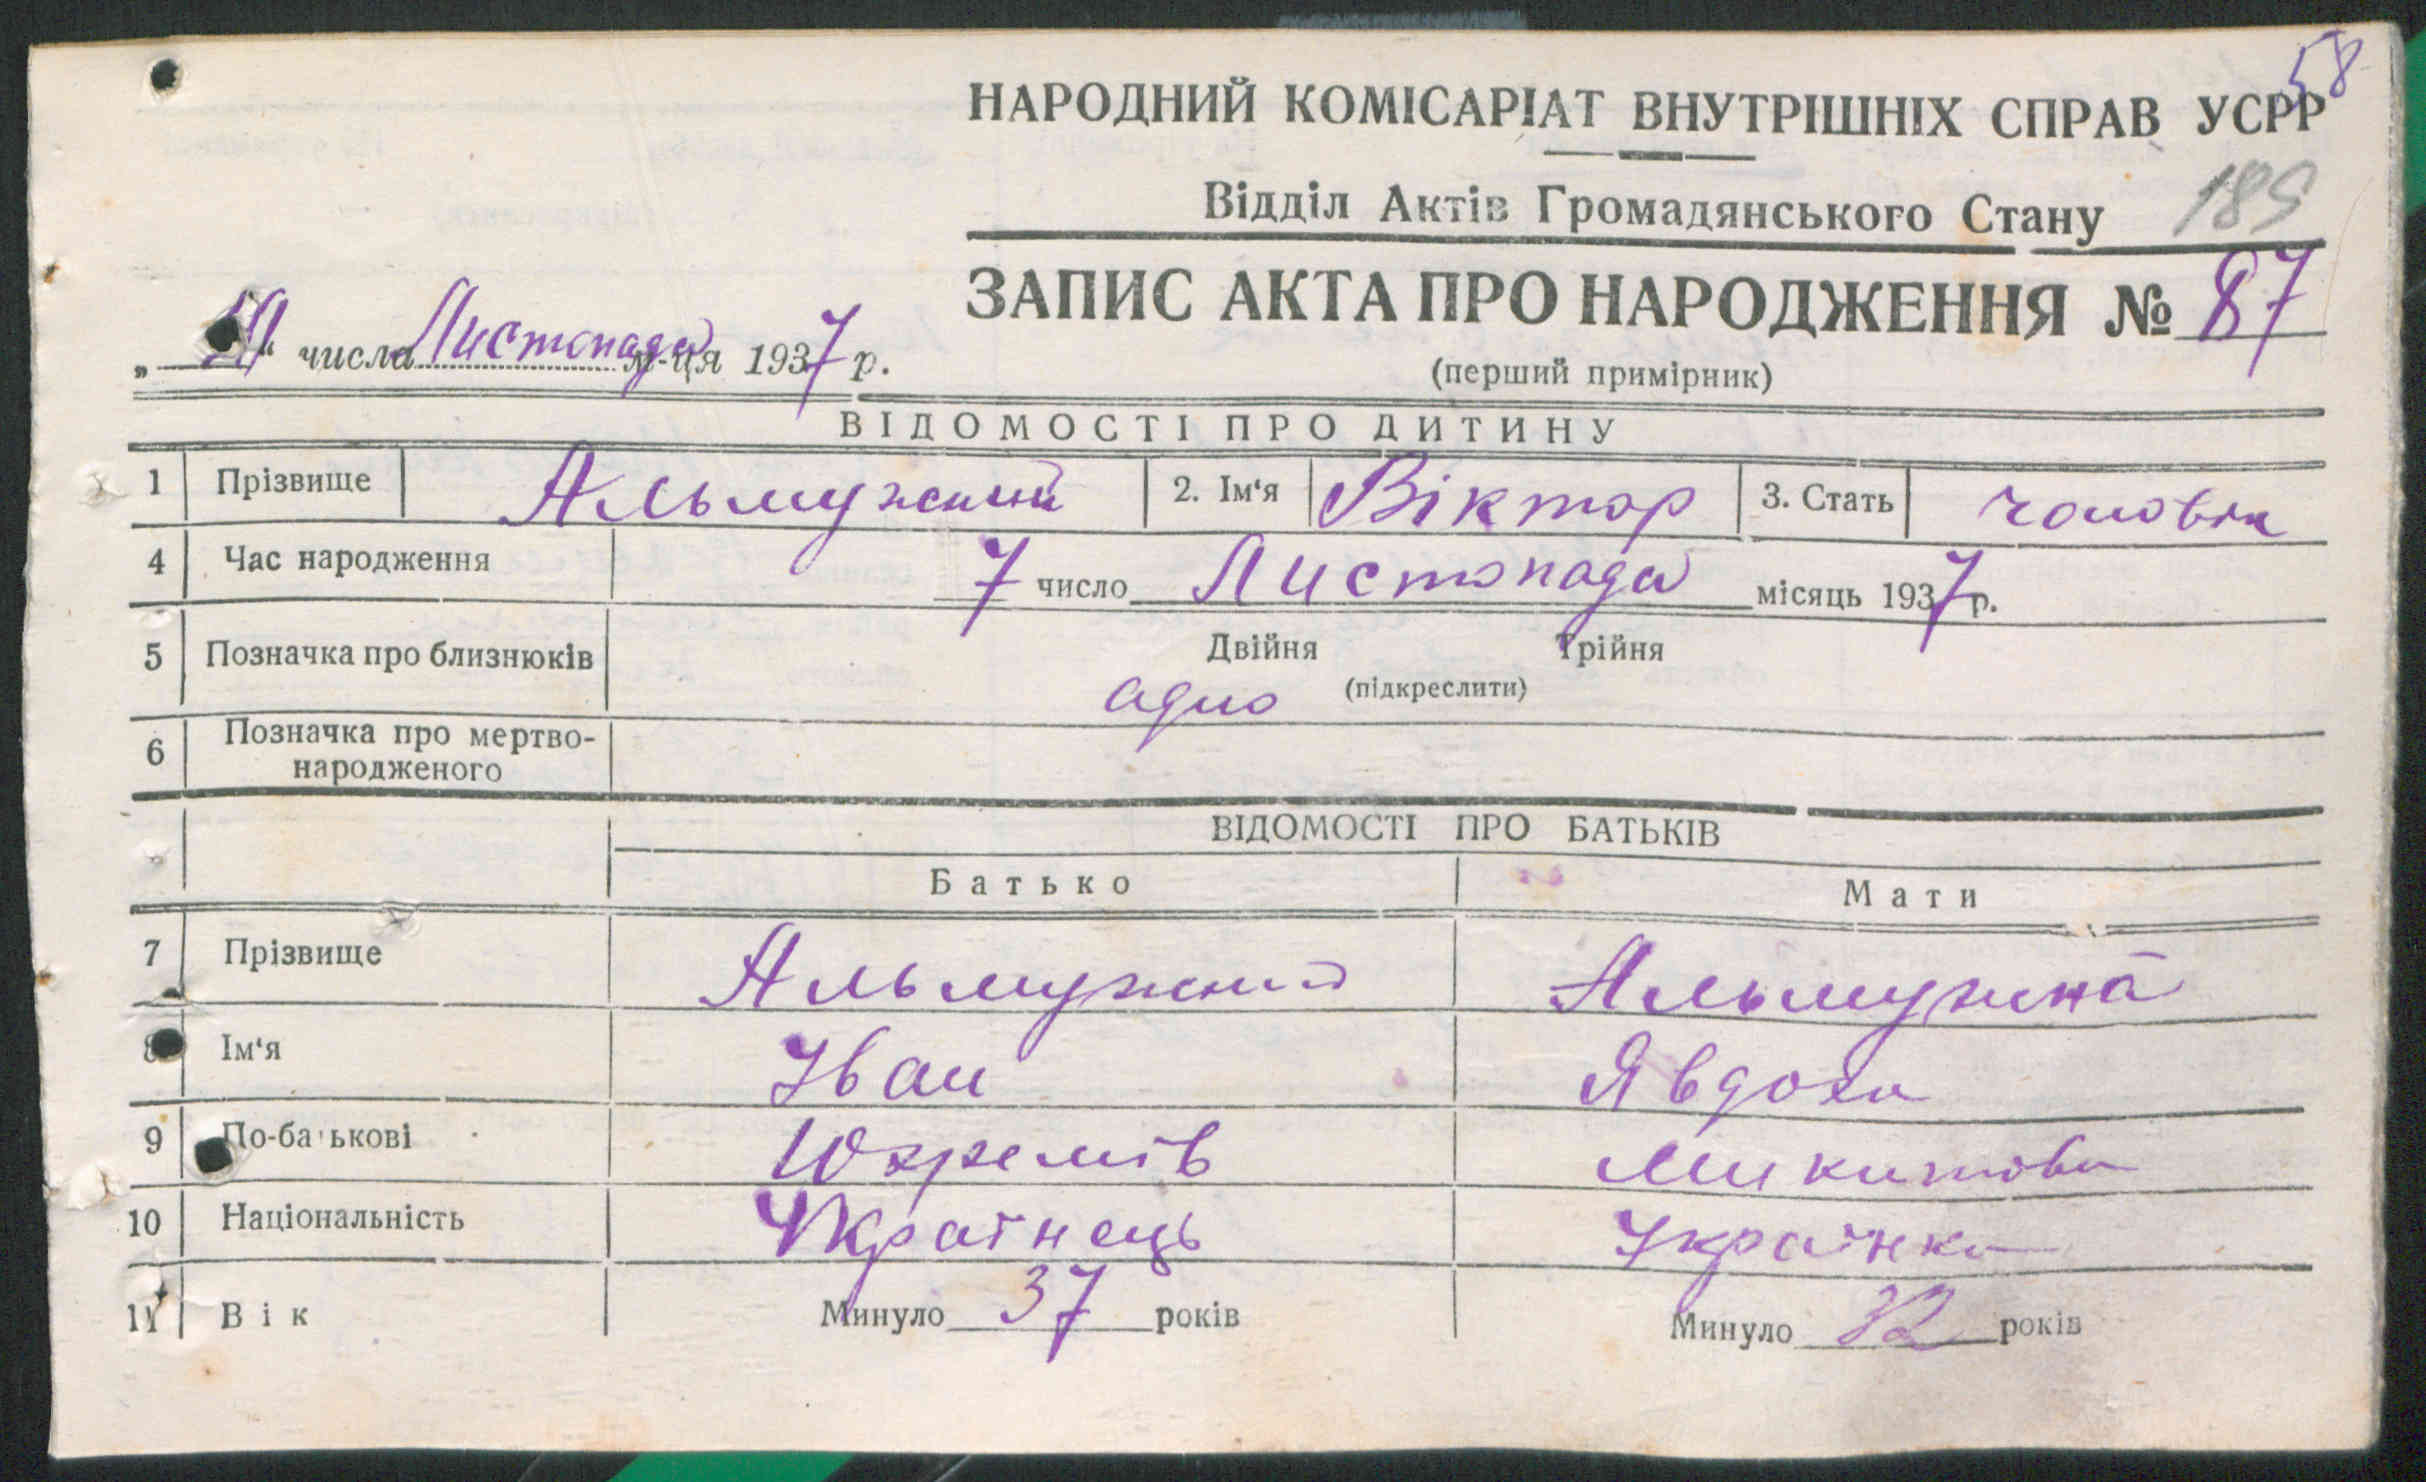 58
НАРОДНИЙ КОМІСАРІАТ ВНУТРІШНІХ СПРАВ УСРР
Відділ Актів Громадянського Стану 189
ЗАПИС АКТА ПРО НАРОДЖЕННЯ № 87
„ “ числа Листопада м-ця 1937 р.
(перший примірник)
ВІДОМОСТІ ПРО ДИТИНУ
1 Прізвище Альмужний 2. Ім‘я Віктор 3. Стать чоловік
4 Час народження 7 число Листопада місяць 1937 р.
5 Позначка про близнюків Двійня Трійня
адно (підкреслити)
6 Позначка про мертво-
народженого
ВІДОМОСТІ ПРО БАТЬКІВ
Батько Мати
7 Прізвище Альмужний Альмужна
8 Ім‘я Іван Явдоха
9 По-батькові Юхремів Микитова
10 Національність Українець Українка
11 Вік Минуло 37 років Минуло 32 років